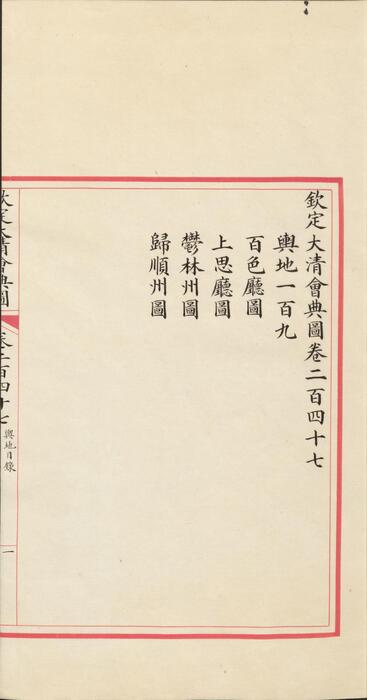 欽定大清會典圖卷二百四十七
輿地一百九
百色廳圖
上思廳圖
鬱林州圖
歸順州圖
欽定大清會典圖
卷二百四十七
輿地目錄
一